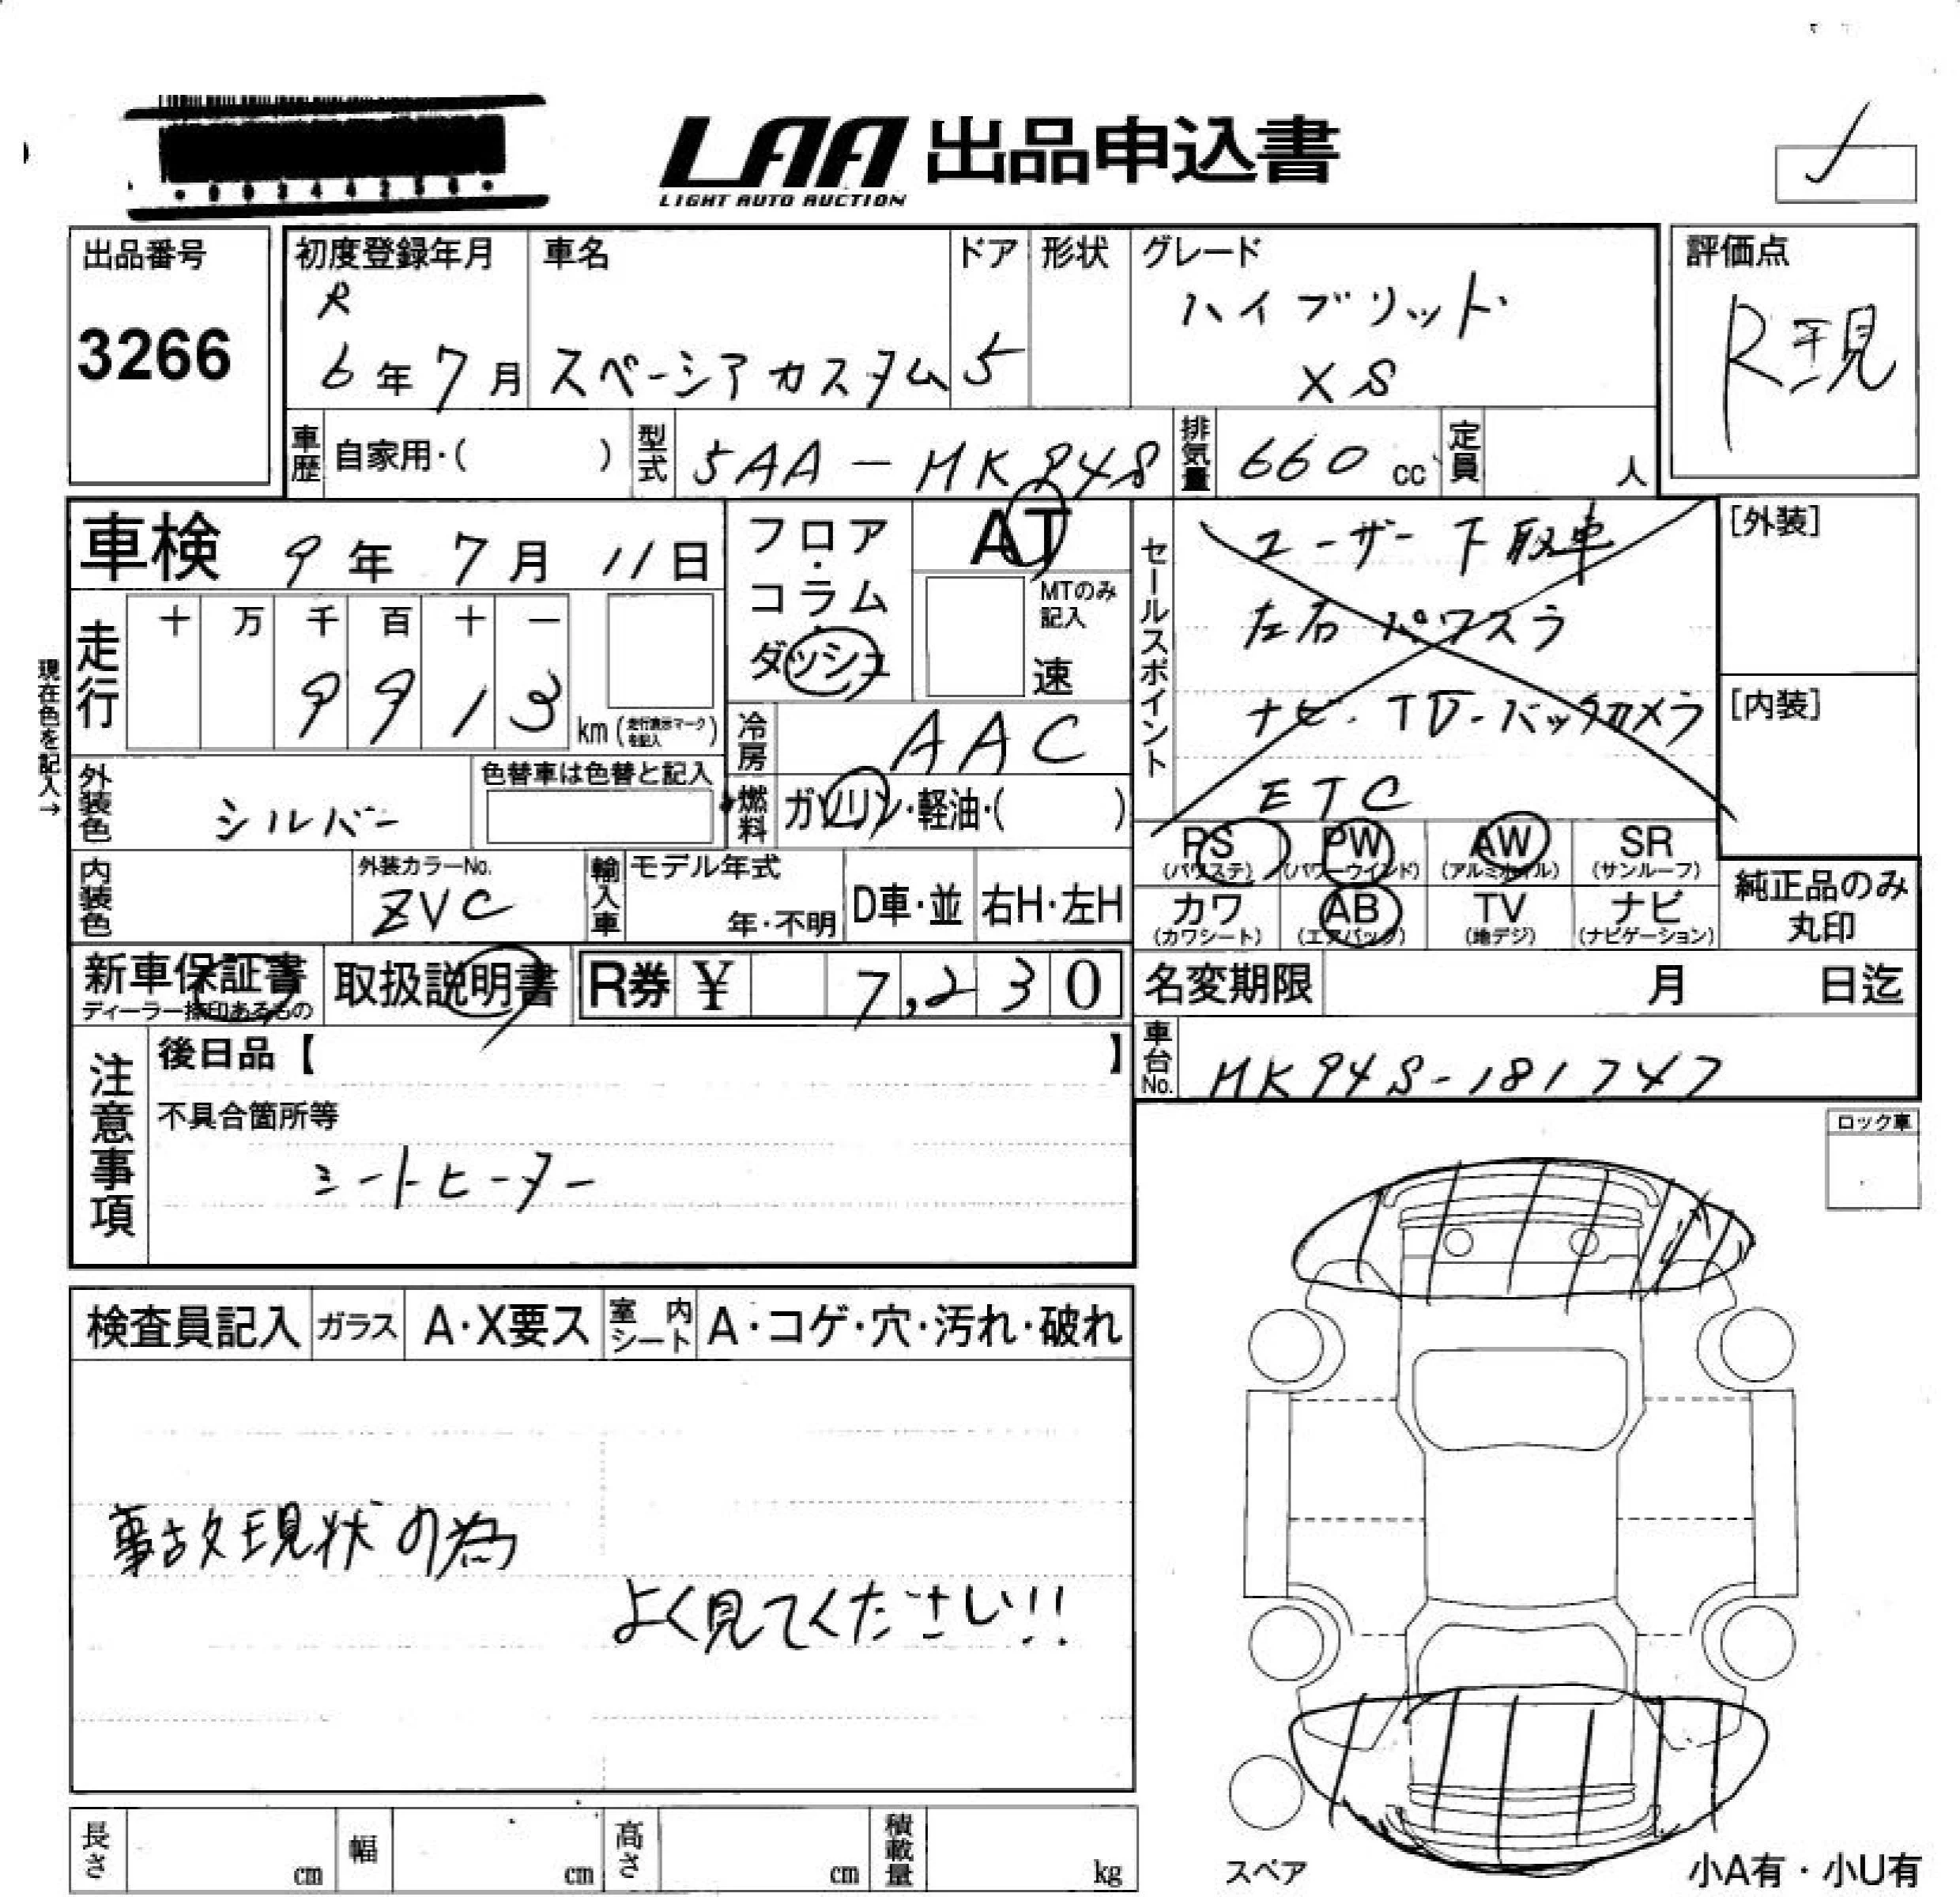 LAA 出品申込書
LIGHT AUTO AUCTION
出品番号
3266
初度登録年月
R
6年7月
車名
スペーシアカスタム
ドア
5
形状
グレード
ハイブリッド
XS
評価点
R 現
車歴 自家用・( )
型式 5AA-MK94S
排気量 660 cc
定員 人
車検 9年7月11日
フロア・
コラム・
ダッシュ
AT
MTのみ記入
速
セールスポイント
ユーザー下取車
左右パワスラ
ナビ・TV・バックカメラ
ETC
[外装]
[内装]
現在色を記入→
走行
十 万 千 百 十 一
9 9 1 3
km(走行表示マークを記入)
冷房 AAC
外装色 シルバー
色替車は色替と記入
燃料 ガソリン・軽油・( )
PS (パワステ)
PW (パワーウインド)
AW (アルミホイル)
SR (サンルーフ)
カワ (カワシート)
AB (エアバッグ)
TV (地デジ)
ナビ (ナビゲーション)
純正品のみ
丸印
内装色
外装カラーNo.
ZVC
輸入車
モデル年式
年・不明
D車・並
右H・左H
新車保証書
ディーラー捺印あるもの
取扱説明書
R券 ¥ 7,230
名変期限 月 日迄
車台No. MK94S-181747
注意事項
後日品【 】
不具合箇所等
シートヒーター
ロック車
検査員記入
ガラス A・X要ス
室内シート A・コゲ・穴・汚れ・破れ
事故現状の為
よく見てください!!
長さ cm
幅 cm
高さ cm
積載量 kg
スペア
小A有・小U有